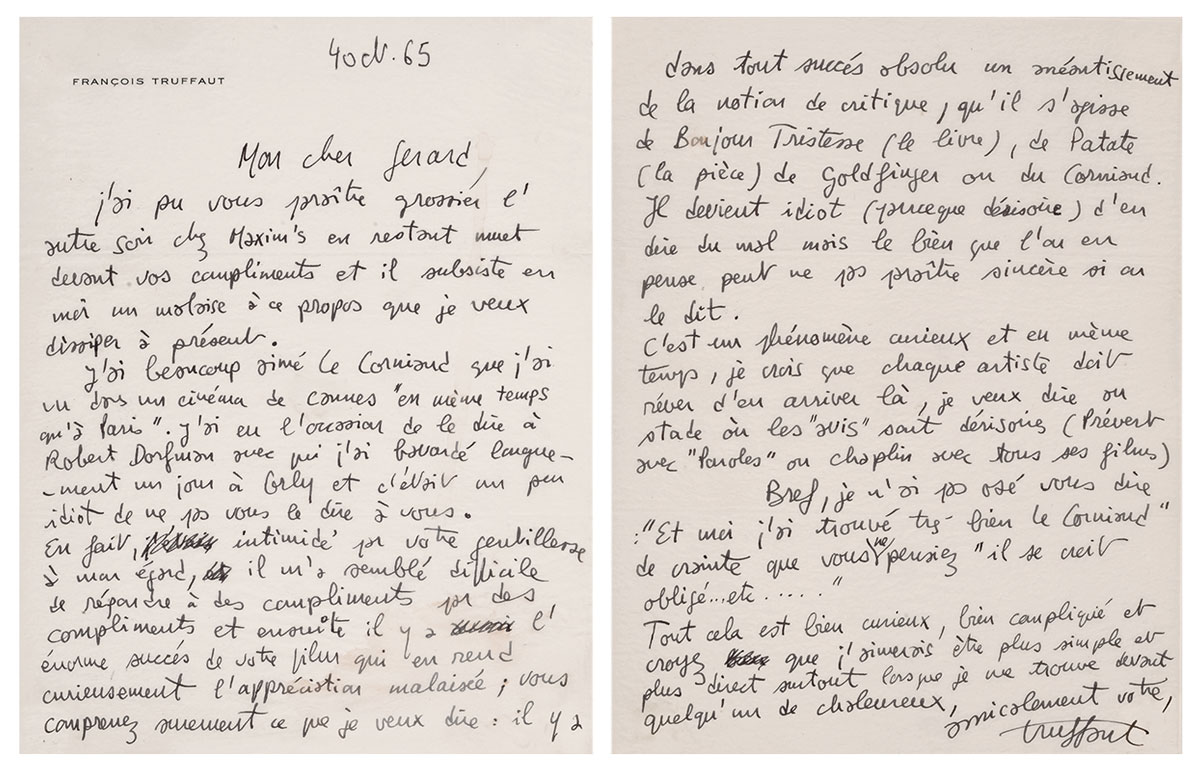 4 oct. 65
FRANÇOIS TRUFFAUT
Mon cher Gerard,
j'ai pu vous praître grossier l'
autre soir chez Maxim's en restant muet
devant vos compliments et il subsiste en
moi un malaise à ce propos que je veux
dissiper à présent.
J'ai beaucoup aimé le Corniaud que j'ai
vu dans un cinéma de Cannes "en même temps
qu'à Paris". J'ai eu l'occasion de le dire à
Robert Dorfman avec qui j'ai bavardé longue-
-ment un jour à Orly et c'était un peu
idiot de ne ps vous le dire à vous.
En fait, intimidé pr votre gentillesse
à mon égard, il m'a semblé difficile
de répondre à des compliments pr des
compliments et ensuite il y a l'
énorme succès de votre film qui en rend
curieusement l'appréciation malaisée ; vous
comprenez surement ce que je veux dire : il y a
dans tout succés absolu un anéantissement
de la notion de critique, qu'il s'agisse
de Bonjour Tristesse (le livre), de Patate
(la pièce) de Goldfinger ou du Corniaud.
Il devient idiot (parceque dérisoire) d'en
dire du mal mais le bien que l'on en
pense peut ne ps praître sincère si on
le dit.
C'est un phénomène curieux et en même
temps, je crois que chaque artiste doit
réver d'en arriver là, je veux dire au
stade où les "avis" sont dérisoires (Prévert
avec "Paroles" ou Chaplin avec tous ses films)
Bref, je n'ai ps osé vous dire
: "Et moi j'ai trouvé trs bien le Corniaud"
de crainte que vous ne pensiez "il se croit
obligé...etc....."
Tout cela est bien curieux, bien compliqué et
croyez que j'aimerais être plus simple et
plus direct surtout lorsque je me trouve devant
quelqu'un de chaleureux,
amicalement votre,
truffaut